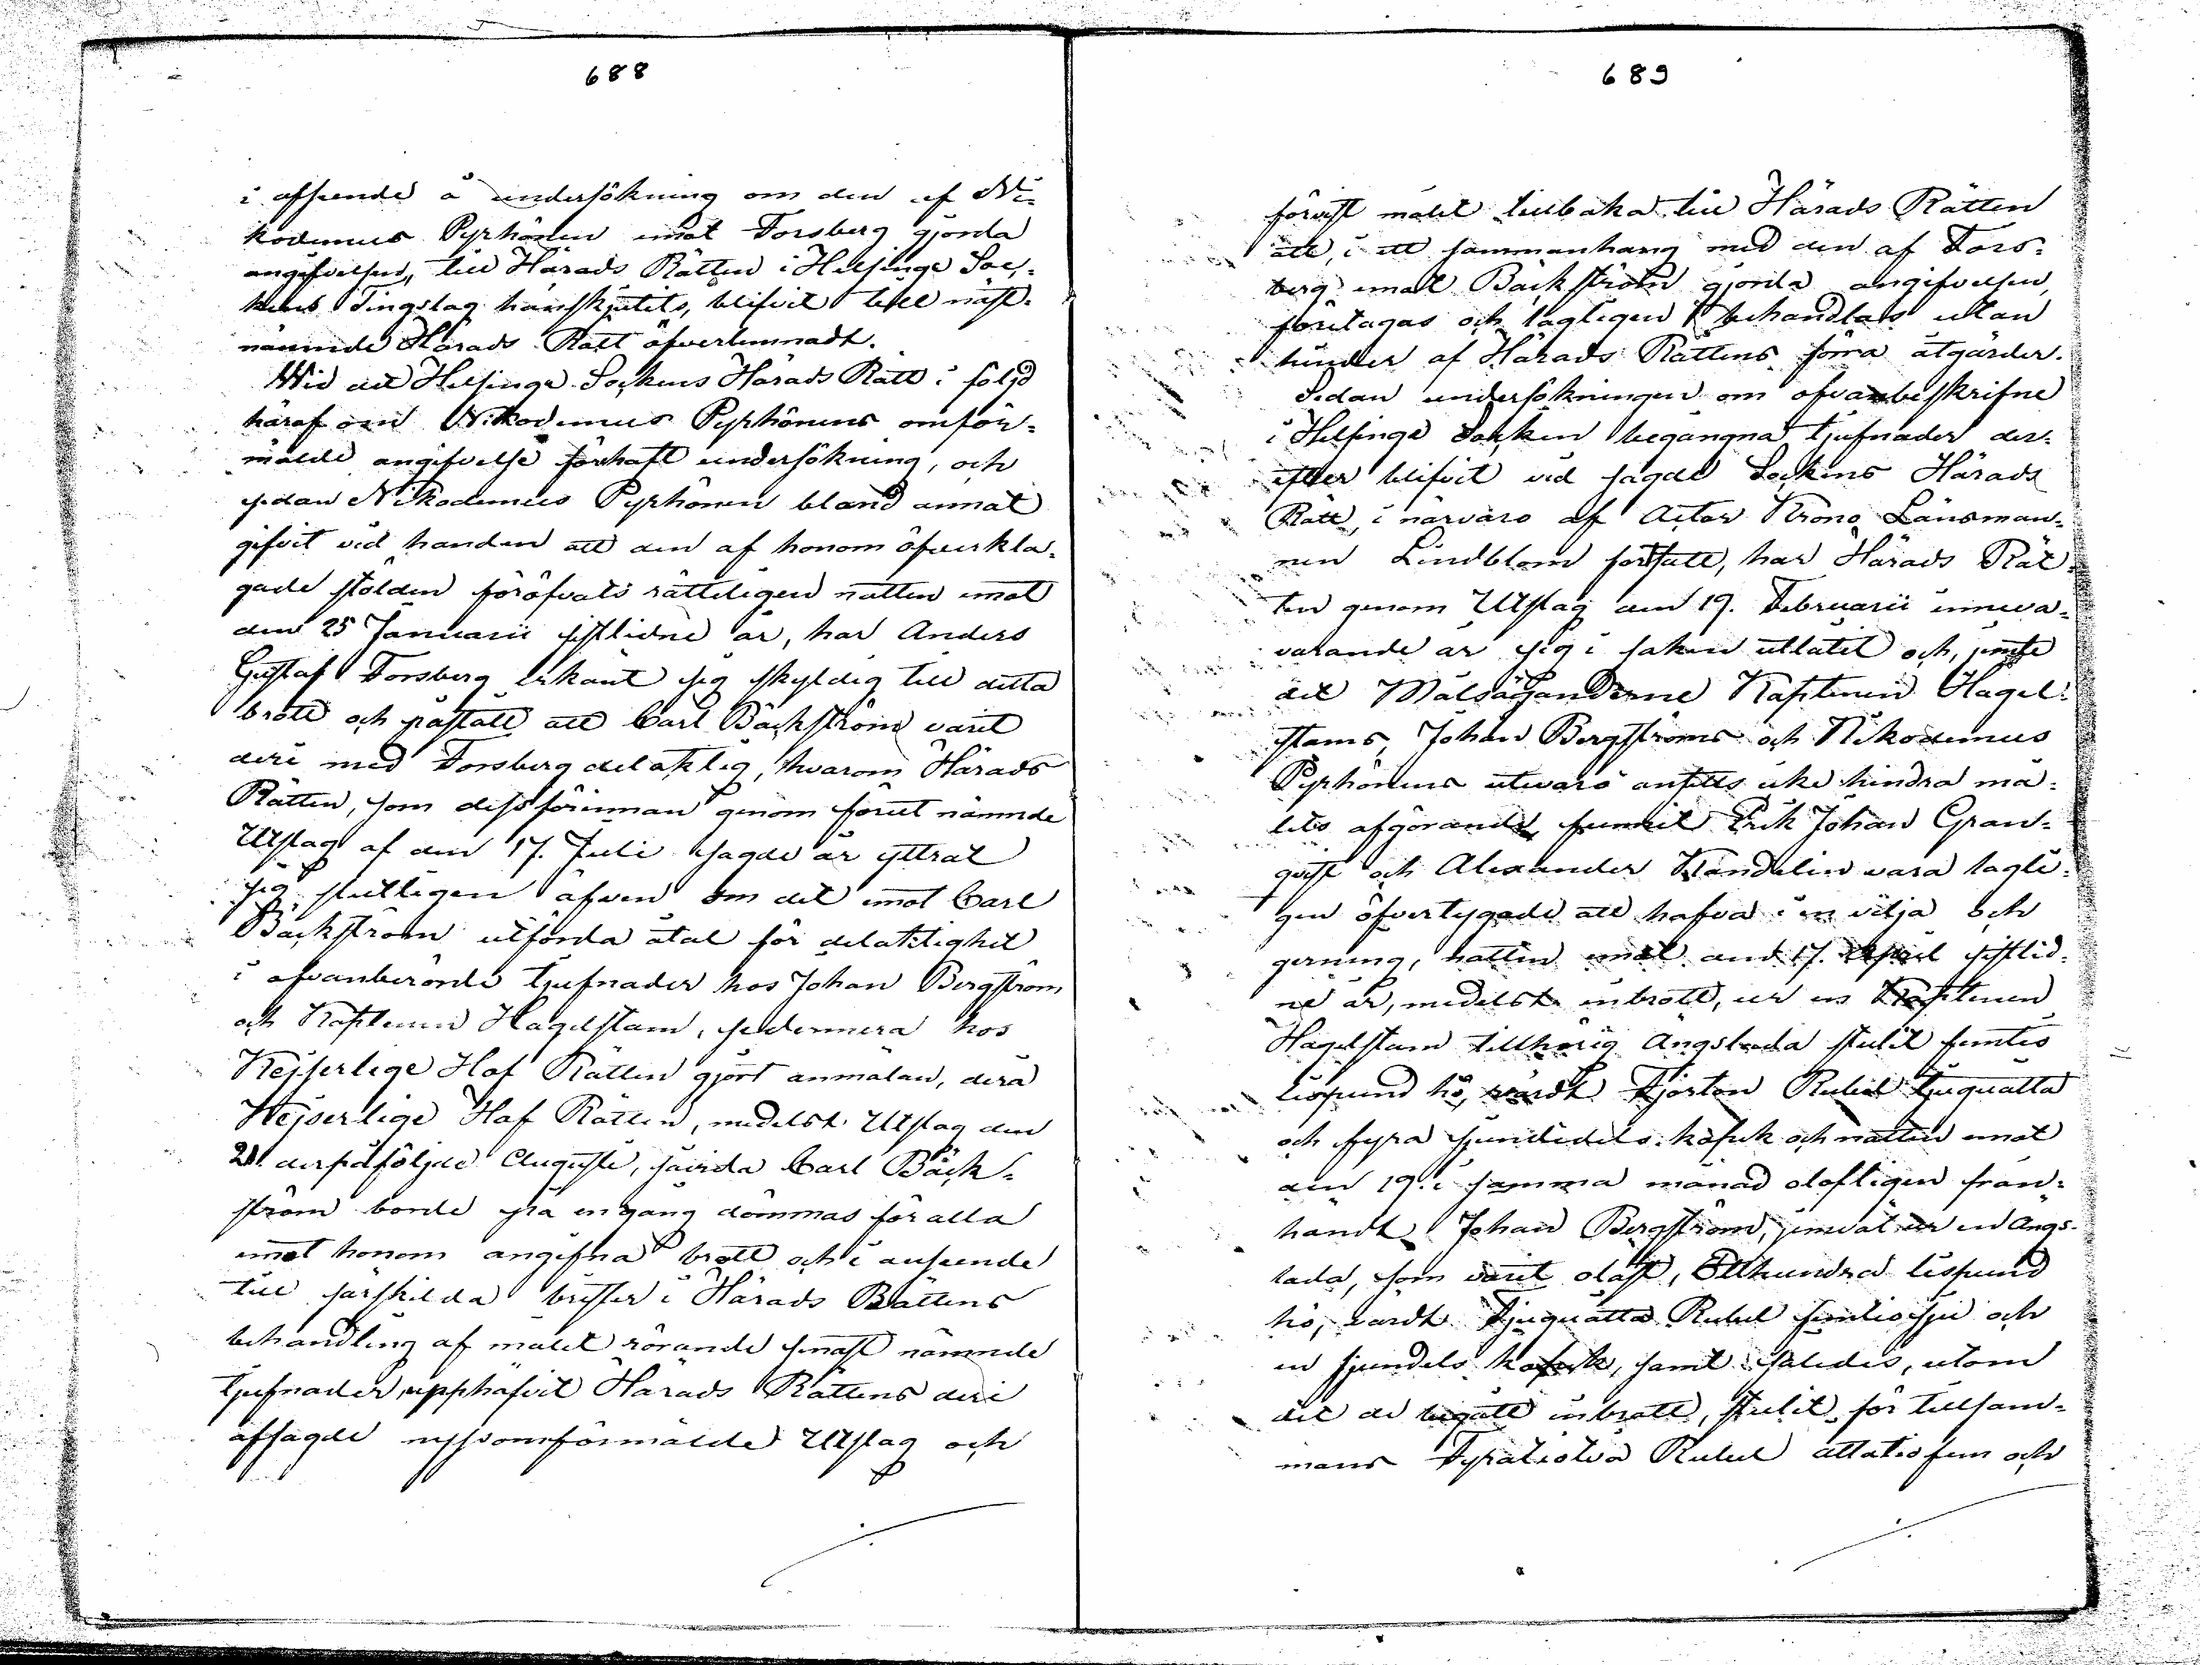 688
i afseende å undersökning om den af Ni-
kodemus Pyrhönen emot Forsberg gjorda
angifvelsen, till Härads Rätten i Helsinge Soc-
kens Tingslag hänskjutits, blifvit till näst-
nämnde Härads Rätt öfverlemnadt.
Wid det Helsinge Sockens Härads Rätt i följd
häraf om Nikodemus Pyrhönens omför-
mälde angifvelse förhaft undersökning, och
sedan Nikodemus Pyrhönen bland annat
gifvit vid handen att den af honom öfverkla-
gade stölden föröfvats rätteligen natten emot
den 25 Januarii sistlidne år, har Anders
Gustaf Forsberg erkänt sig skyldig till detta
brott och påstått att Carl Bäckström varit
deri med Forsberg delaktig, hvarom Härads
Rätten, som dessförinnan genom förut nämnde
Utslag af den 17. Juli sagde år yttrat
sig slutligen äfven om det emot Carl
Bäckström utförda åtal för delaktighet
i ofvanberörde tjufnader hos Johan Bergström
och Kaptenen Hagelstam, sedermera hos
Kejserlige Hof Rätten gjort anmälan, derå
Kejserlige Hof Rätten, medelst Utslag den
21 derpåföljde Augusti, såvida Carl Bäck-
ström borde på en gång dömmas för alla
emot honom angifna brott och i anseende
till särskilda brister i Härads Rättens
behandling af målet rörande senast nämnde
tjufnader, upphäfvit Härads Rättens deri
afsagde nyssomförmälde Utslag och
689
förvist målet tillbaka till Härads Rätten
att, i ett sammanhang med den af Fors-
berg emot Bäckström gjorda angifvelsen,
företagas och lagligen behandlas utan
hinder af Härads Rättens förra åtgärder.
Sedan undersökningen om ofvanbeskrifne
i Helsinge Socken begångna tjufnader der-
efter blifvit vid sagde Sockens Härads
Rätt, i närvaro af Actor Krono Länsman-
nen Lindblom fortsatt, har Härads Rät-
ten genom Utslag den 19. Februarii inneva-
varande år sig i saken utlåtit och, jemte
det Målsäganderne Kaptenen Hagel-
stams, Johan Bergströms och Nikodemus
Pyrhönens utevaro ansetts icke hindra må-
lets afgörande, funnit Erik Johan Gran-
qvist och Alexander Kandelin vara lagli-
gen öfvertygade att hafva i en vilja och
gerning, natten emot den 17. April sistlid-
ne år, medelst inbrott, ur en Kaptenen
Hagelstam tillhörig Ängslada stulit femtio
lispund hö, värdt fjorton Rubel tjuguåtta
och fyra sjundedels kopek och natten emot
den 19. i samma månad olofligen från-
händt Johan Bergström, jemväl ur en Ängs-
lada, som varit olåst, Etthundra lispund
hö, värdt tjuguåtta Rubel femtiosju och
en sjundels kopek, samt således, utom
det de begått inbrott, stulit för tillsam-
mans Fyratiotva Rubel åttatiofem och